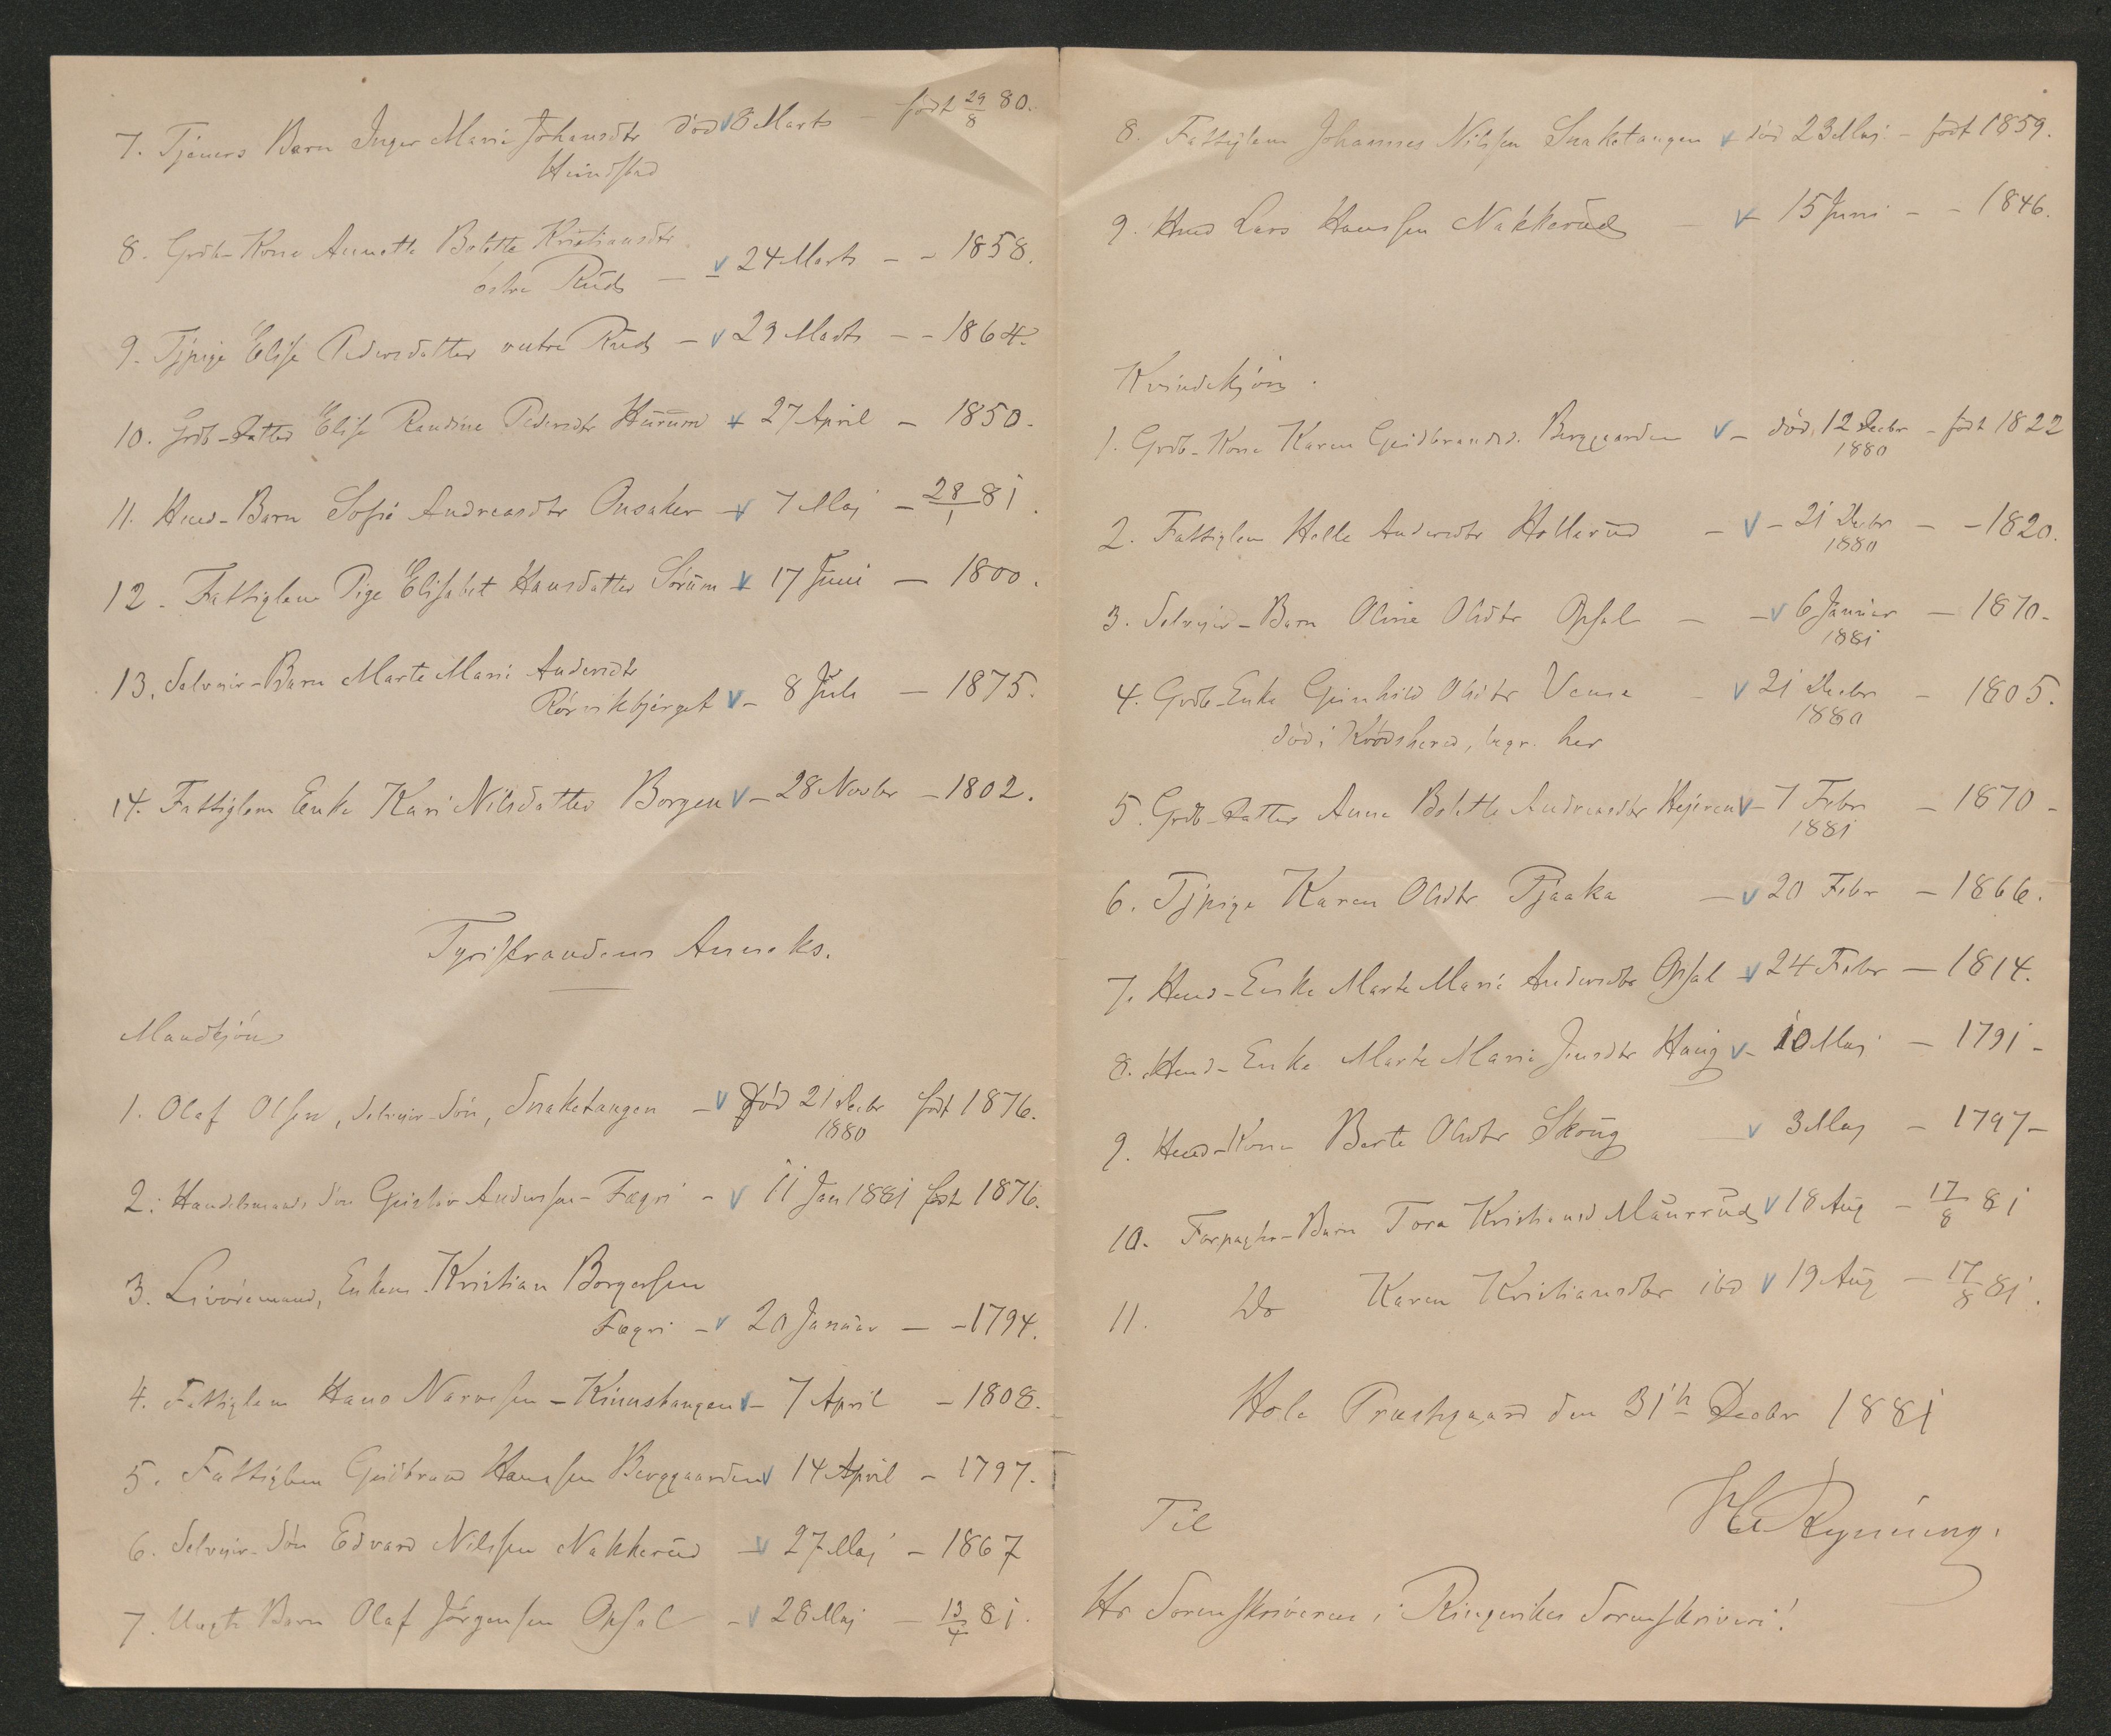 7. Tjeners Barn Inger Marie Johansdtr död 8 Marts - födt 29/8 80.
Hundstad
8. Grdb-Kone Annette Bolette Kristiansdtr
östre Rud - 24 Marts - - 1858.
9. Tjpige Elise Pedersdatter vestre Rud - 29 Marts - - 1864.
10. Grdb-Datter Elise Randine Pedersdtr Hurum 27 April - 1850.
11. Husm-Barn Sofie Andreasdtr Onsaker - 7 Maj - 28/1 81.
12. Fattiglem Pige Elisabet Hansdatter Sörum - 17 Juni - 1800.
13. Selveier-Barn Marte Marie Andersdtr
Rörvikbjerget - 8 Juli - 1875.
14. Fattiglem Enke Kari Nilsdatter Borgen - 28 Novbr - 1802.
Tyristrandens Anneks.
Mandkjön
1. Olaf Olsen, Selveier-Sön, Snaketangen - Död 21 Decbr födt 1876.
1880
2. Handelsmands Sön Gustav Andersen - Fægri - 11 Jan 1881 födt 1876.
3. Livöremand, Enkem. Kristian Borgersen
Fægri - 20 Januar - - 1794.
4. Fattiglem Hans Narvesen - Kinnstangen - 7 April - 1808.
5. Fattiglem Gudbrand Hansen Berggaarden 14 April - 1797.
6. Selveier-Sön Edvard Nilssen Nakkerud - 27 Maj - 1867
7. Ungk Barn Olaf Jörgensen Opsal - 28 Maj - 13/4 81.
8. Fattiglem Johannes Nilssen Snaketangen - död 23 Maj - födt 1859.
9. Husm Lars Hanssen Nakkerud - 15 Juni - - 1846.
Kvindekjön.
1. Grdb-Kone Karen Gudbrandsd. Berggaarden - död 12 Decbr - födt 1822
1880
2. Fattiglem Helle Andersdtr Hollerud - - 21 Decbr - - 1820.
1880
3. Selveier-Barn Oline Olsdtr Opsal - - 6 Januar - 1870.
1881
4. Grdb-Enke Gunhild Olsdtr Veme - 21 Decbr - 1805.
1880
död i Krödshered, begr. her
5. Grdb-Datter Anne Bolette Andreasdtr - 7 Febr - 1870 -
1881
6. Tjpige Karen Olsdtr Tjaaka - 20 Febr - 1866.
7. Husm-Enke Marte Marie Andersdtr Opsal - 24 Febr - 1814.
8. Husm-Enke Marte Marie Jensdtr Haug - 10 Maj - 1791 -
9. Husm-Kone Berte Olsdtr Skoug - 3 Maj - 1797 -
10. Forpagter-Barn Tora Kristiansd Maurrud 18 Aug - 17/8 81
11. Do Karen Kristiansdtr ibd 19 Aug - 17/8 81.
Hole Præstgaard den 31te Decbr 1881
Til
Hr Sorenskriveren i Ringerikes Sorenskriveri!